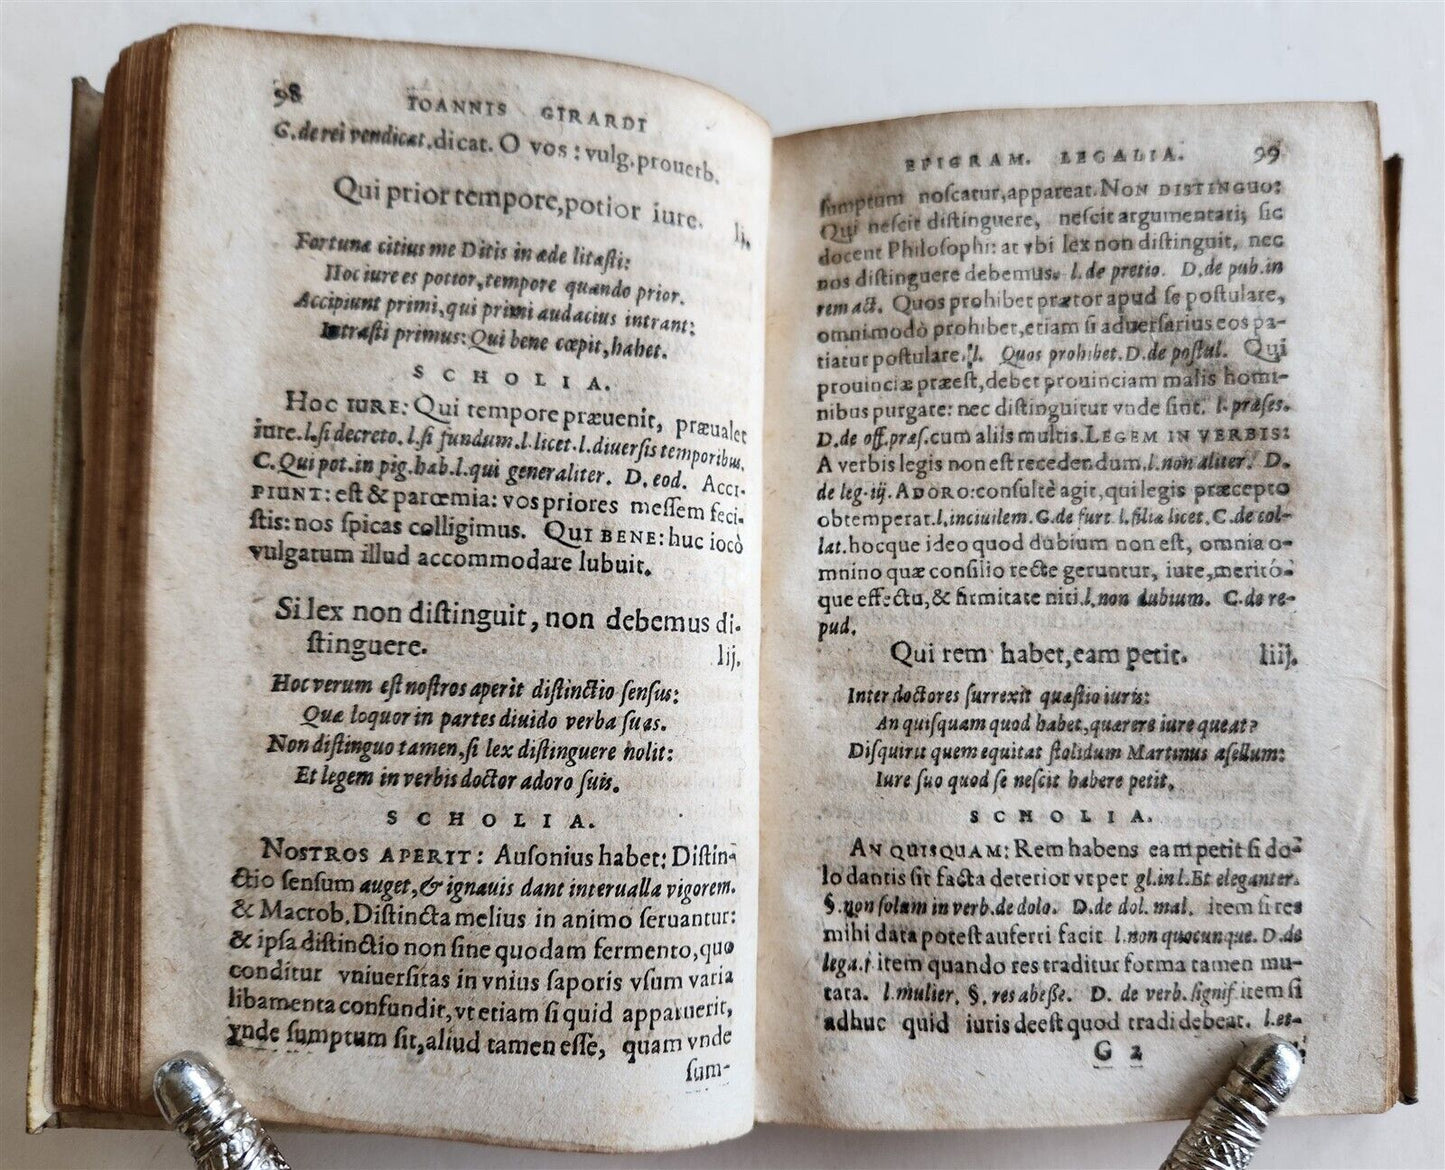 98 IOANNIS GIRARDI
G. de rei vendicat. dicat. O vos: vulg. prouerb.
Qui prior tempore, potior iure. lj.
Fortunæ citius me Ditis in æde litaſti:
Hoc iure es potior, tempore quando prior.
Accipiunt primi, qui primi audacius intrant:
Intraſti primus: Qui bene cœpit, habet.
SCHOLIA.
HOC IURE: Qui tempore præuenit, præualet
iure. l. ſi decreto. l. ſi fundum. l. licet. l. diuerſis temporibus.
C. Qui pot. in pig. hab. l. qui generaliter. D. eod. ACCI-
PIUNT: eſt & parœmia: vos priores meſſem feci-
ſtis: nos ſpicas colligimus. QUI BENE: huc iocò
vulgatum illud accommodare lubuit.
Si lex non diſtinguit, non debemus di-
ſtinguere. lij.
Hoc verum eſt noſtros aperit diſtinctio ſenſus:
Quæ loquor in partes diuido verba ſuas.
Non diſtinguo tamen, ſi lex diſtinguere nolit:
Et legem in verbis doctor adoro ſuis.
SCHOLIA.
NOSTROS APERIT: Auſonius habet: Diſtin-
ctio ſenſum auget, & ignauis dant interualla vigorem.
& Macrob. Diſtincta melius in animo ſeruantur:
& ipſa diſtinctio non ſine quodam fermento, quo
conditur vniuerſitas in vnius ſaporis vſum varia
libamenta confundit, vt etiam ſi quid apparuerit,
vnde ſumptum ſit, aliud tamen eſſe, quam vnde
ſum-
EPIGRAM. LEGALIA. 99
ſumptum noſcatur, appareat. NON DISTINGUO:
Qui neſcit diſtinguere, neſcit argumentari; ſic
docent Philoſophi: at vbi lex non diſtinguit, nec
nos diſtinguere debemus. l. de pretio. D. de pub. in
rem act. Quos prohibet prætor apud ſe poſtulare,
omnimodò prohibet, etiam ſi aduerſarius eos pa-
tiatur poſtulare. l. Quos prohibet. D. de poſtul. Qui
prouinciæ præeſt, debet prouinciam malis homi-
nibus purgare: nec diſtinguitur vnde ſint. l. præſes.
D. de off. præſ. cum aliis multis. LEGEM IN VERBIS:
A verbis legis non eſt recedendum. l. non aliter. D.
de leg. iij. ADORO: conſultè agit, qui legis præcepto
obtemperat. l. inciuilem. G. de furt. l. filiæ licet. C. de col-
lat. hocque ideo quod dubium non eſt, omnia o-
mnino quæ conſilio recte geruntur, iure, meritó-
que effectu, & firmitate niti. l. non dubium. C. de re-
pud.
Qui rem habet, eam petit. liij.
Inter doctores ſurrexit quæſtio iuris:
An quiſquam quod habet, quærere iure queat?
Diſquirit quem equitat ſtolidum Martinus aſellum:
Iure ſuo quod ſe neſcit habere petit.
SCHOLIA.
AN QUISQUAM: Rem habens eam petit ſi do-
lo dantis ſit facta deterior vt per gl. in l. Et eleganter.
§. non ſolum in verb. de dolo. D. de dol. mal. item ſi res
mihi data poteſt auferri facit l. non quocunque. D. de
lega. j item quando res traditur forma tamen mu-
tata. l. mulier. §. res abeſſe. D. de verb. ſignif. item ſi
adhuc quid iuris deeſt quod tradi debeat. l. et-
G 2